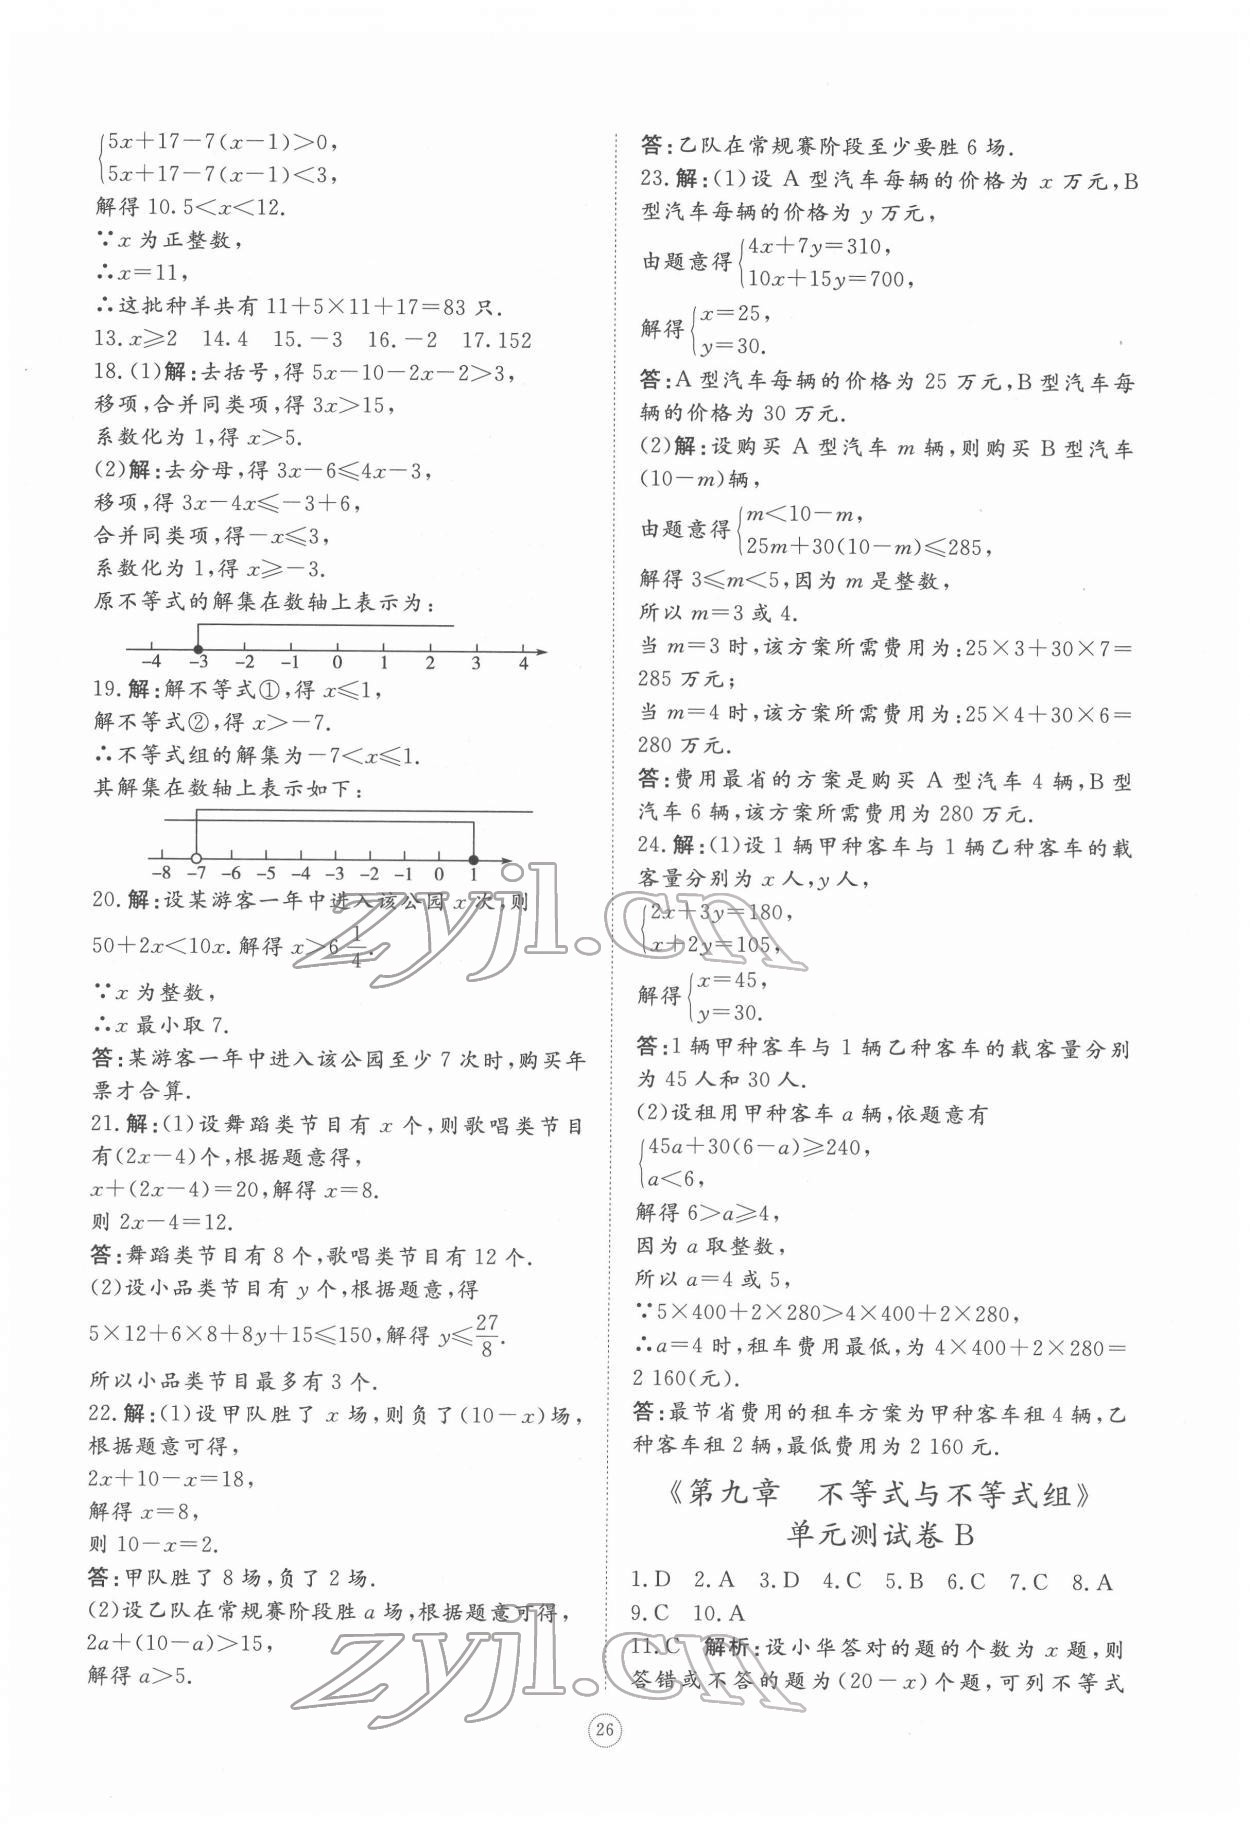 {5x+17-7(x-1)>0,
5x+17-7(x-1)<3,
解得 10.5<x<12.
∵x 为正整数，
∴x=11，
∴这批种羊共有 11+5×11+17=83 只.
13.x≥2 14.4 15.-3 16.-2 17.152
18.(1)解:去括号,得 5x-10-2x-2>3,
移项,合并同类项,得 3x>15,
系数化为 1,得 x>5.
(2)解:去分母,得 3x-6≤4x-3,
移项,得 3x-4x≤-3+6,
合并同类项,得-x≤3,
系数化为 1,得 x≥-3.
原不等式的解集在数轴上表示为:
-4 -3 -2 -1 0 1 2 3 4
19.解:解不等式①,得 x≤1,
解不等式②,得 x>-7.
∴不等式组的解集为-7<x≤1.
其解集在数轴上表示如下:
-8 -7 -6 -5 -4 -3 -2 -1 0 1
20.解:设某游客一年中进入该公园 x 次,则
50+2x<10x.解得 x>6 1/4.
∵x 为整数,
∴x 最小取 7.
答:某游客一年中进入该公园至少 7 次时,购买年
票才合算.
21.解:(1)设舞蹈类节目有 x 个,则歌唱类节目
有(2x-4)个,根据题意得,
x+(2x-4)=20,解得 x=8.
则 2x-4=12.
答:舞蹈类节目有 8 个,歌唱类节目有 12 个.
(2)设小品类节目有 y 个,根据题意,得
5×12+6×8+8y+15≤150,解得 y≤27/8.
所以小品类节目最多有 3 个.
22.解:(1)设甲队胜了 x 场,则负了(10-x)场,
根据题意可得,
2x+10-x=18,
解得 x=8,
则 10-x=2.
答:甲队胜了 8 场,负了 2 场.
(2)设乙队在常规赛阶段胜 a 场,根据题意可得,
2a+(10-a)>15,
解得 a>5.
答:乙队在常规赛阶段至少要胜 6 场.
23.解:(1)设 A 型汽车每辆的价格为 x 万元,B
型汽车每辆的价格为 y 万元,
由题意得{4x+7y=310,
10x+15y=700,
解得{x=25,
y=30.
答:A 型汽车每辆的价格为 25 万元,B 型汽车每
辆的价格为 30 万元.
(2)解:设购买 A 型汽车 m 辆,则购买 B 型汽车
(10-m)辆,
由题意得{m<10-m,
25m+30(10-m)≤285,
解得 3≤m<5,因为 m 是整数,
所以 m=3 或 4.
当 m=3 时,该方案所需费用为:25×3+30×7=
285 万元;
当 m=4 时,该方案所需费用为:25×4+30×6=
280 万元.
答:费用最省的方案是购买 A 型汽车 4 辆,B 型
汽车 6 辆,该方案所需费用为 280 万元.
24.解:(1)设 1 辆甲种客车与 1 辆乙种客车的载
客量分别为 x 人,y 人,
{2x+3y=180,
x+2y=105,
解得{x=45,
y=30.
答:1 辆甲种客车与 1 辆乙种客车的载客量分别
为 45 人和 30 人.
(2)设租用甲种客车 a 辆,依题意有
{45a+30(6-a)≥240,
a<6,
解得 6>a≥4,
因为 a 取整数,
所以 a=4 或 5,
∵5×400+2×280>4×400+2×280,
∴a=4 时,租车费用最低,为 4×400+2×280=
2 160(元).
答:最节省费用的租车方案为甲种客车租 4 辆,乙
种客车租 2 辆,最低费用为 2 160 元.
《第九章 不等式与不等式组》
单元测试卷 B
1.D 2.A 3.D 4.C 5.B 6.C 7.C 8.A
9.C 10.A
11.C 解析:设小华答对的题的个数为 x 题,则
答错或不答的题为(20-x)个题,可列不等式
26
zyjl.cn
zyjl.cn